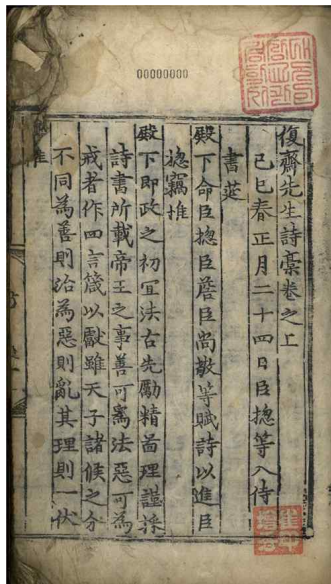 00000000
復齋先生詩藁卷之上
己巳春正月二十四日臣摠等入侍
書筵
殿下命臣摠臣詹臣尚敬等賦詩以進臣
摠竊惟
殿下即政之初冝法古先勵精啚理謹採
詩書所載帝王之事善可為法惡可為
戒者作四言箴以獻雖天子諸侯之分
不同為善則治為惡則亂其理則一伏
惟